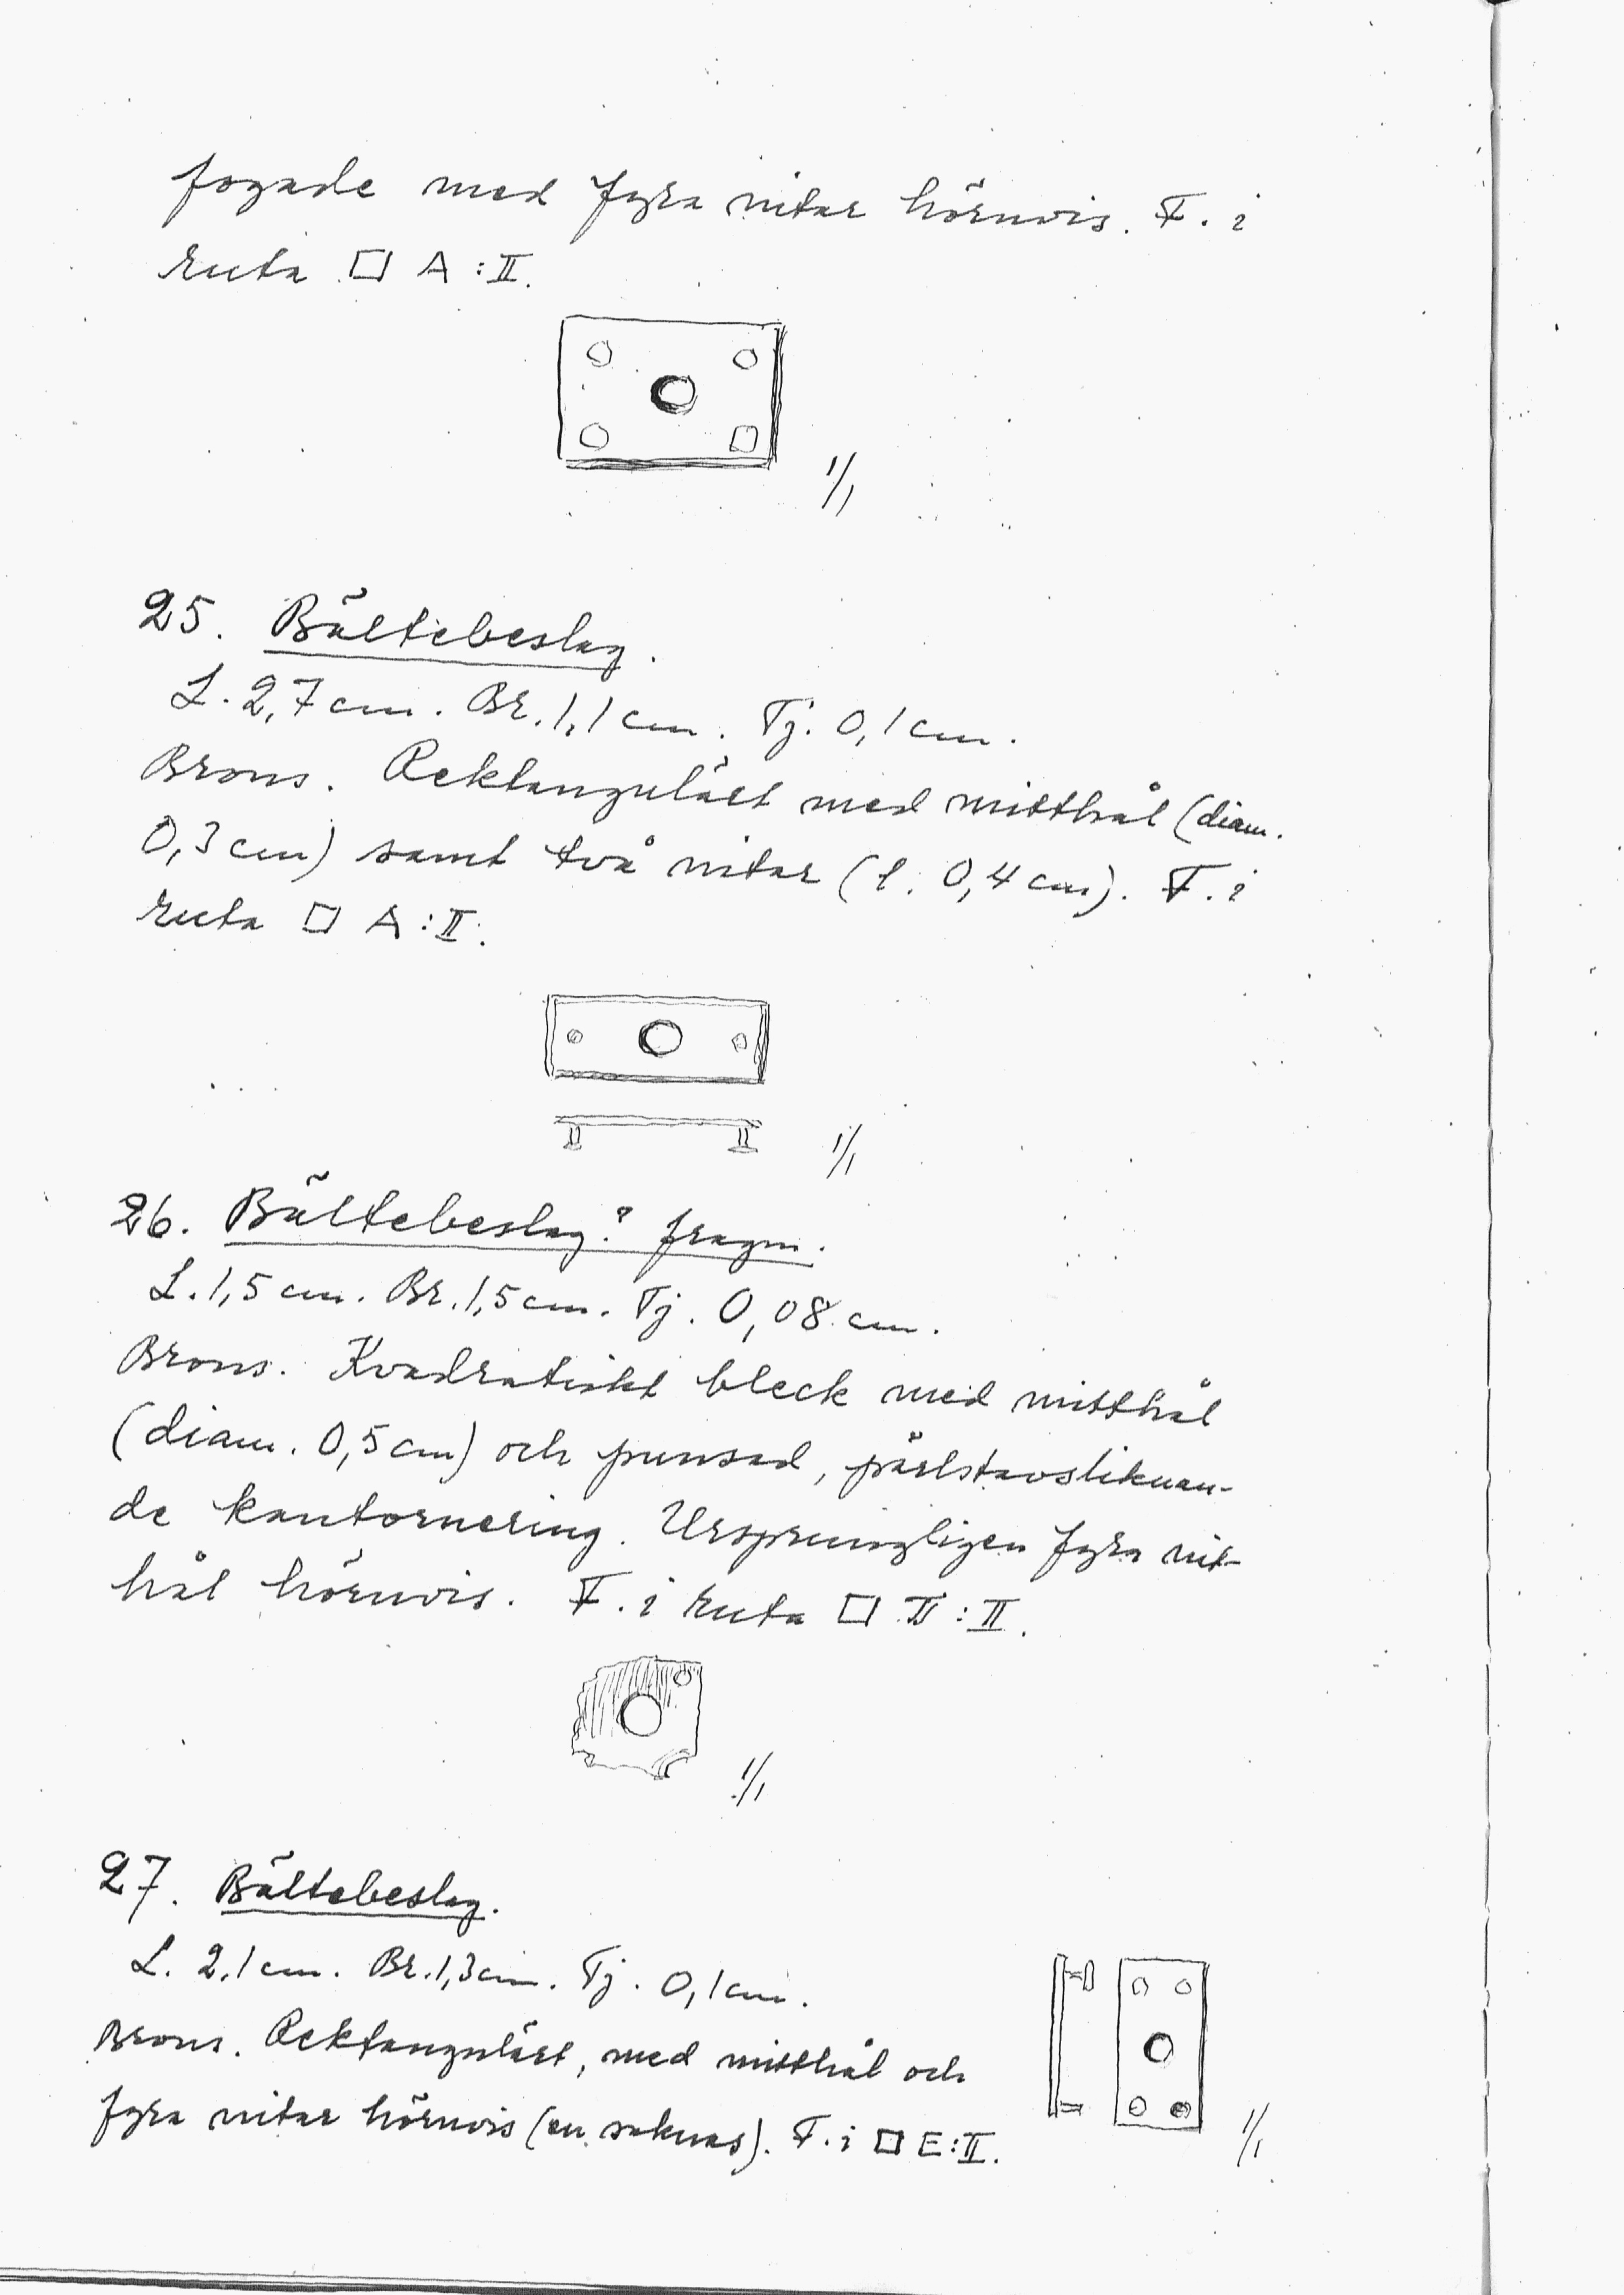 fogade med fyra nitar hörnvis. F. i
ruta □ A:II.
1/1
25. Bältebeslag.
L. 2,7 cm. Br. 1,1 cm. Tj. 0,1 cm.
Brons. Rektangulärt med mitthål (diam.
0,3 cm) samt två nitar (l. 0,4 cm). F. i
ruta □ A:II.
1/1
26. Bältebeslag? fragm.
L. 1,5 cm. Br. 1,5 cm. Tj. 0,08 cm.
Brons. Kvadratiskt bleck med mitthål
(diam. 0,5 cm) och punsad, pärlstavsliknan-
de kantornering. Ursprungligen fyra nit-
hål hörnvis. F. i ruta □ :II.
1/1
27. Bältebeslag.
L. 2,1 cm. Br. 1,3 cm. Tj. 0,1 cm.
Brons. Rektangulärt, med mitthål och
fyra nitar hörnvis (en saknas). F. i □ E:II.
1/1